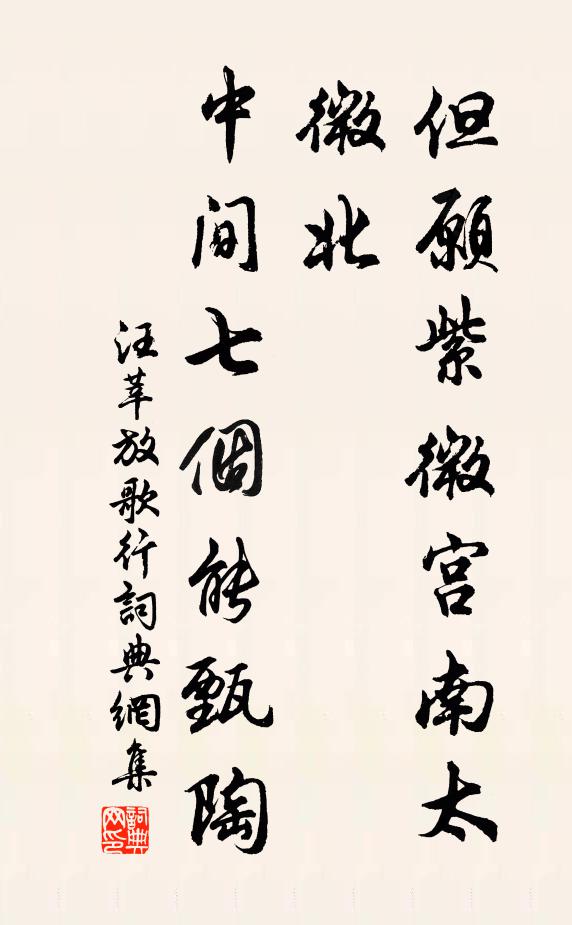 但願紫微宮南太
微北
中間七個能甄陶
汪莘放歌行詞典網集
詞典網印